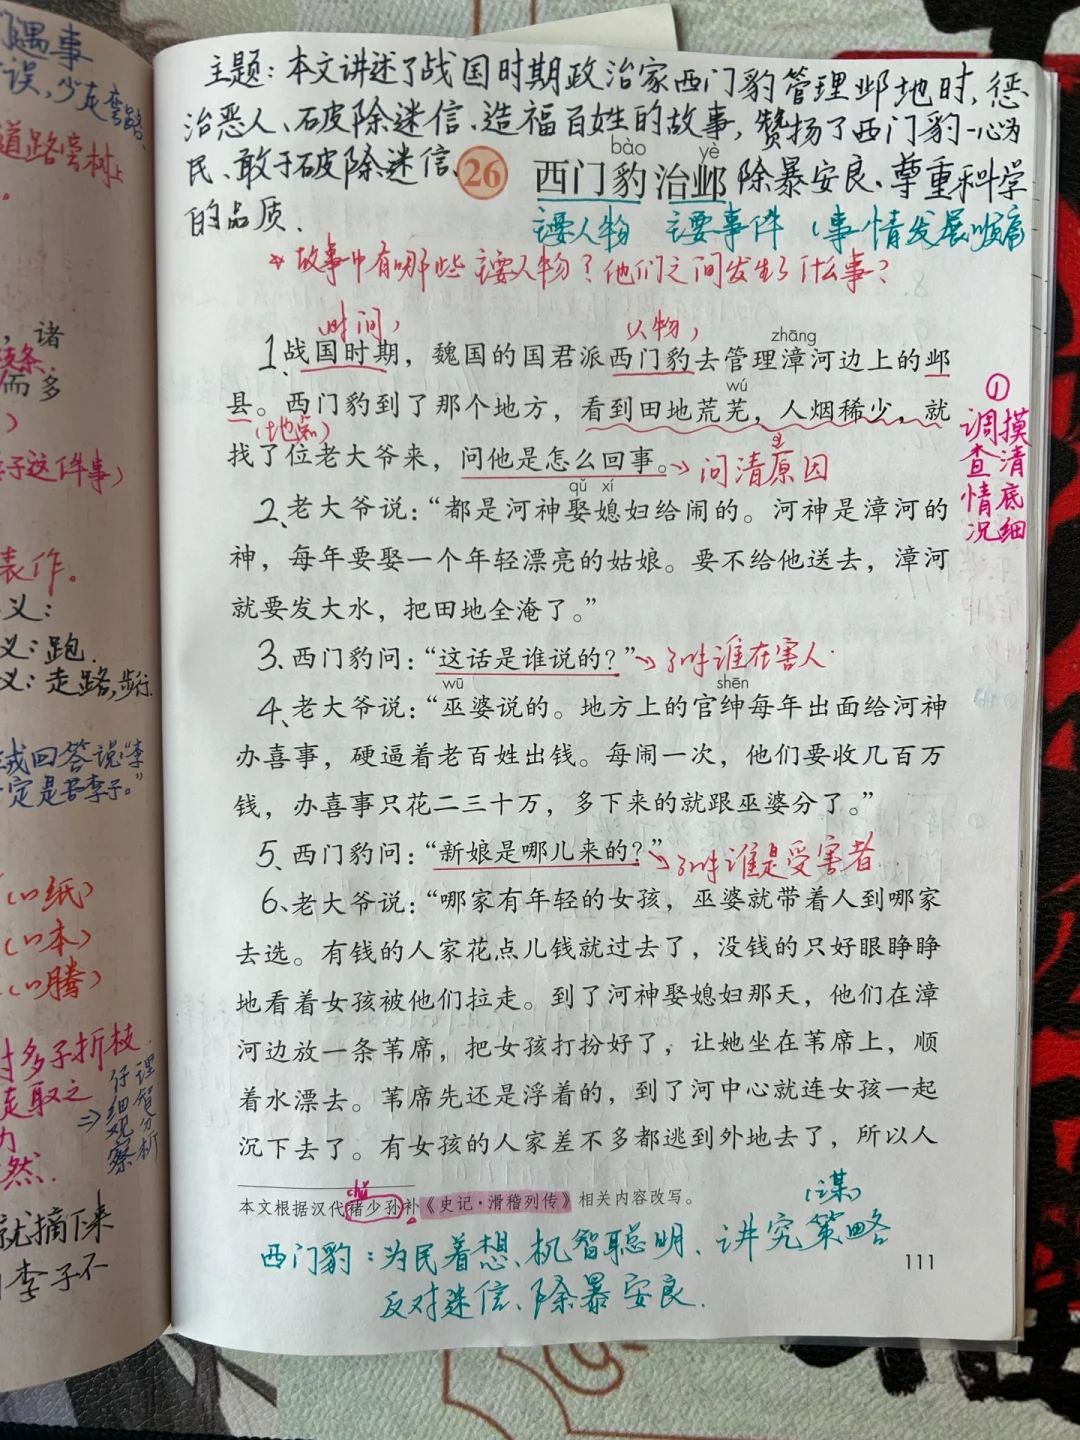 遇事
误，少走弯路、
道路旁树上
，诸
而多
）
子这件事）
表作。
义：
义：跑.
义：走路，步行.
或回答说“李
定是苦李子。”
（以纸）
（以本）
（以腾）
时多子折枝.
走取之
然.
仔细观察
理智分析
就摘下来
李子不
主题：本文讲述了战国时期政治家西门豹管理邺地时，惩
治恶人、破除迷信、造福百姓的故事，赞扬了西门豹一心为
bào yè
民、敢于破除迷信、 26 西门豹治邺 除暴安良、尊重科学
的品质.
主要人物 主要事件 （事情发展顺序
*故事中有哪些主要人物？他们之间发生了什么事？
时间， 人物，
zhāng
1、战国时期，魏国的国君派西门豹去管理漳河边上的邺
wú
县。西门豹到了那个地方，看到田地荒芜，人烟稀少，就
（地点）
找了位老大爷来，问他是怎么回事。→问清原因
qǔ xí
2、老大爷说：“都是河神娶媳妇给闹的。河神是漳河的
神，每年要娶一个年轻漂亮的姑娘。要不给他送去，漳河
就要发大水，把田地全淹了。”
3、西门豹问：“这话是谁说的？”→了解谁在害人.
wū shēn
4、老大爷说：“巫婆说的。地方上的官绅每年出面给河神
办喜事，硬逼着老百姓出钱。每闹一次，他们要收几百万
钱，办喜事只花二三十万，多下来的就跟巫婆分了。”
5、西门豹问：“新娘是哪儿来的？”→了解谁是受害者
6、老大爷说：“哪家有年轻的女孩，巫婆就带着人到哪家
去选。有钱的人家花点儿钱就过去了，没钱的只好眼睁睁
地看着女孩被他们拉走。到了河神娶媳妇那天，他们在漳
河边放一条苇席，把女孩打扮好了，让她坐在苇席上，顺
着水漂去。苇席先还是浮着的，到了河中心就连女孩一起
沉下去了。有女孩的人家差不多都逃到外地去了，所以人
①
摸清底细
调查情况
chǔ
本文根据汉代褚少孙补《史记·滑稽列传》相关内容改写。
（谋）
西门豹：为民着想、机智聪明、讲究策略
反对迷信、除暴安良.
111